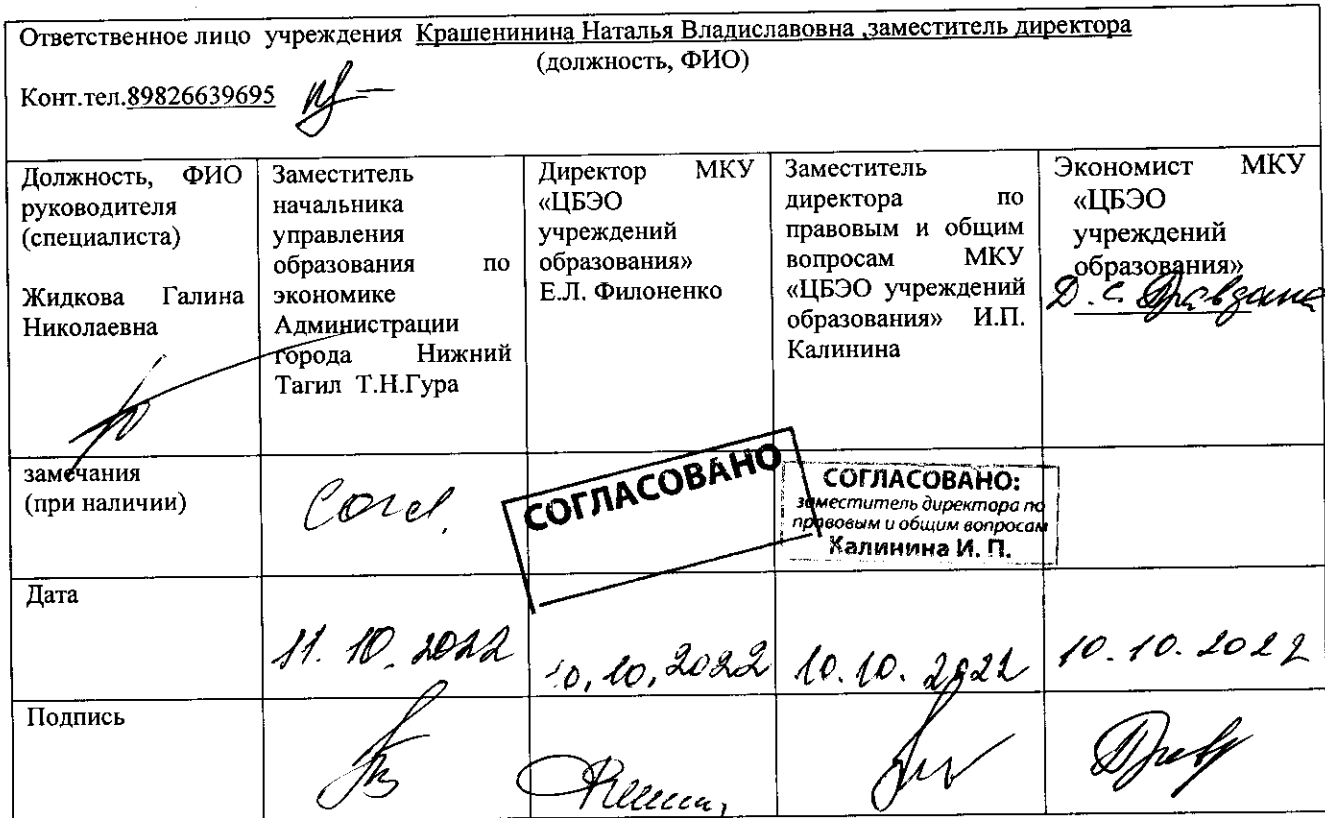 Ответственное лицо учреждения Крашенинина Наталья Владиславовна ,заместитель директора
(должность, ФИО)
Конт.тел.89826639695
Должность, ФИО
руководителя
(специалиста)
Жидкова Галина
Николаевна
Заместитель
начальника
управления
образования по
экономике
Администрации
города Нижний
Тагил Т.Н.Гура
Директор МКУ
«ЦБЭО
учреждений
образования»
Е.Л. Филоненко
Заместитель
директора по
правовым и общим
вопросам МКУ
«ЦБЭО учреждений
образования» И.П.
Калинина
Экономист МКУ
«ЦБЭО
учреждений
образования»
Д.С.
замечания
(при наличии)
Согл.
СОГЛАСОВАНО
СОГЛАСОВАНО:
заместитель директора по
правовым и общим вопросам
Калинина И. П.
Дата
11.10.2022
10.10.2022
10.10.2022
10.10.2022
Подпись